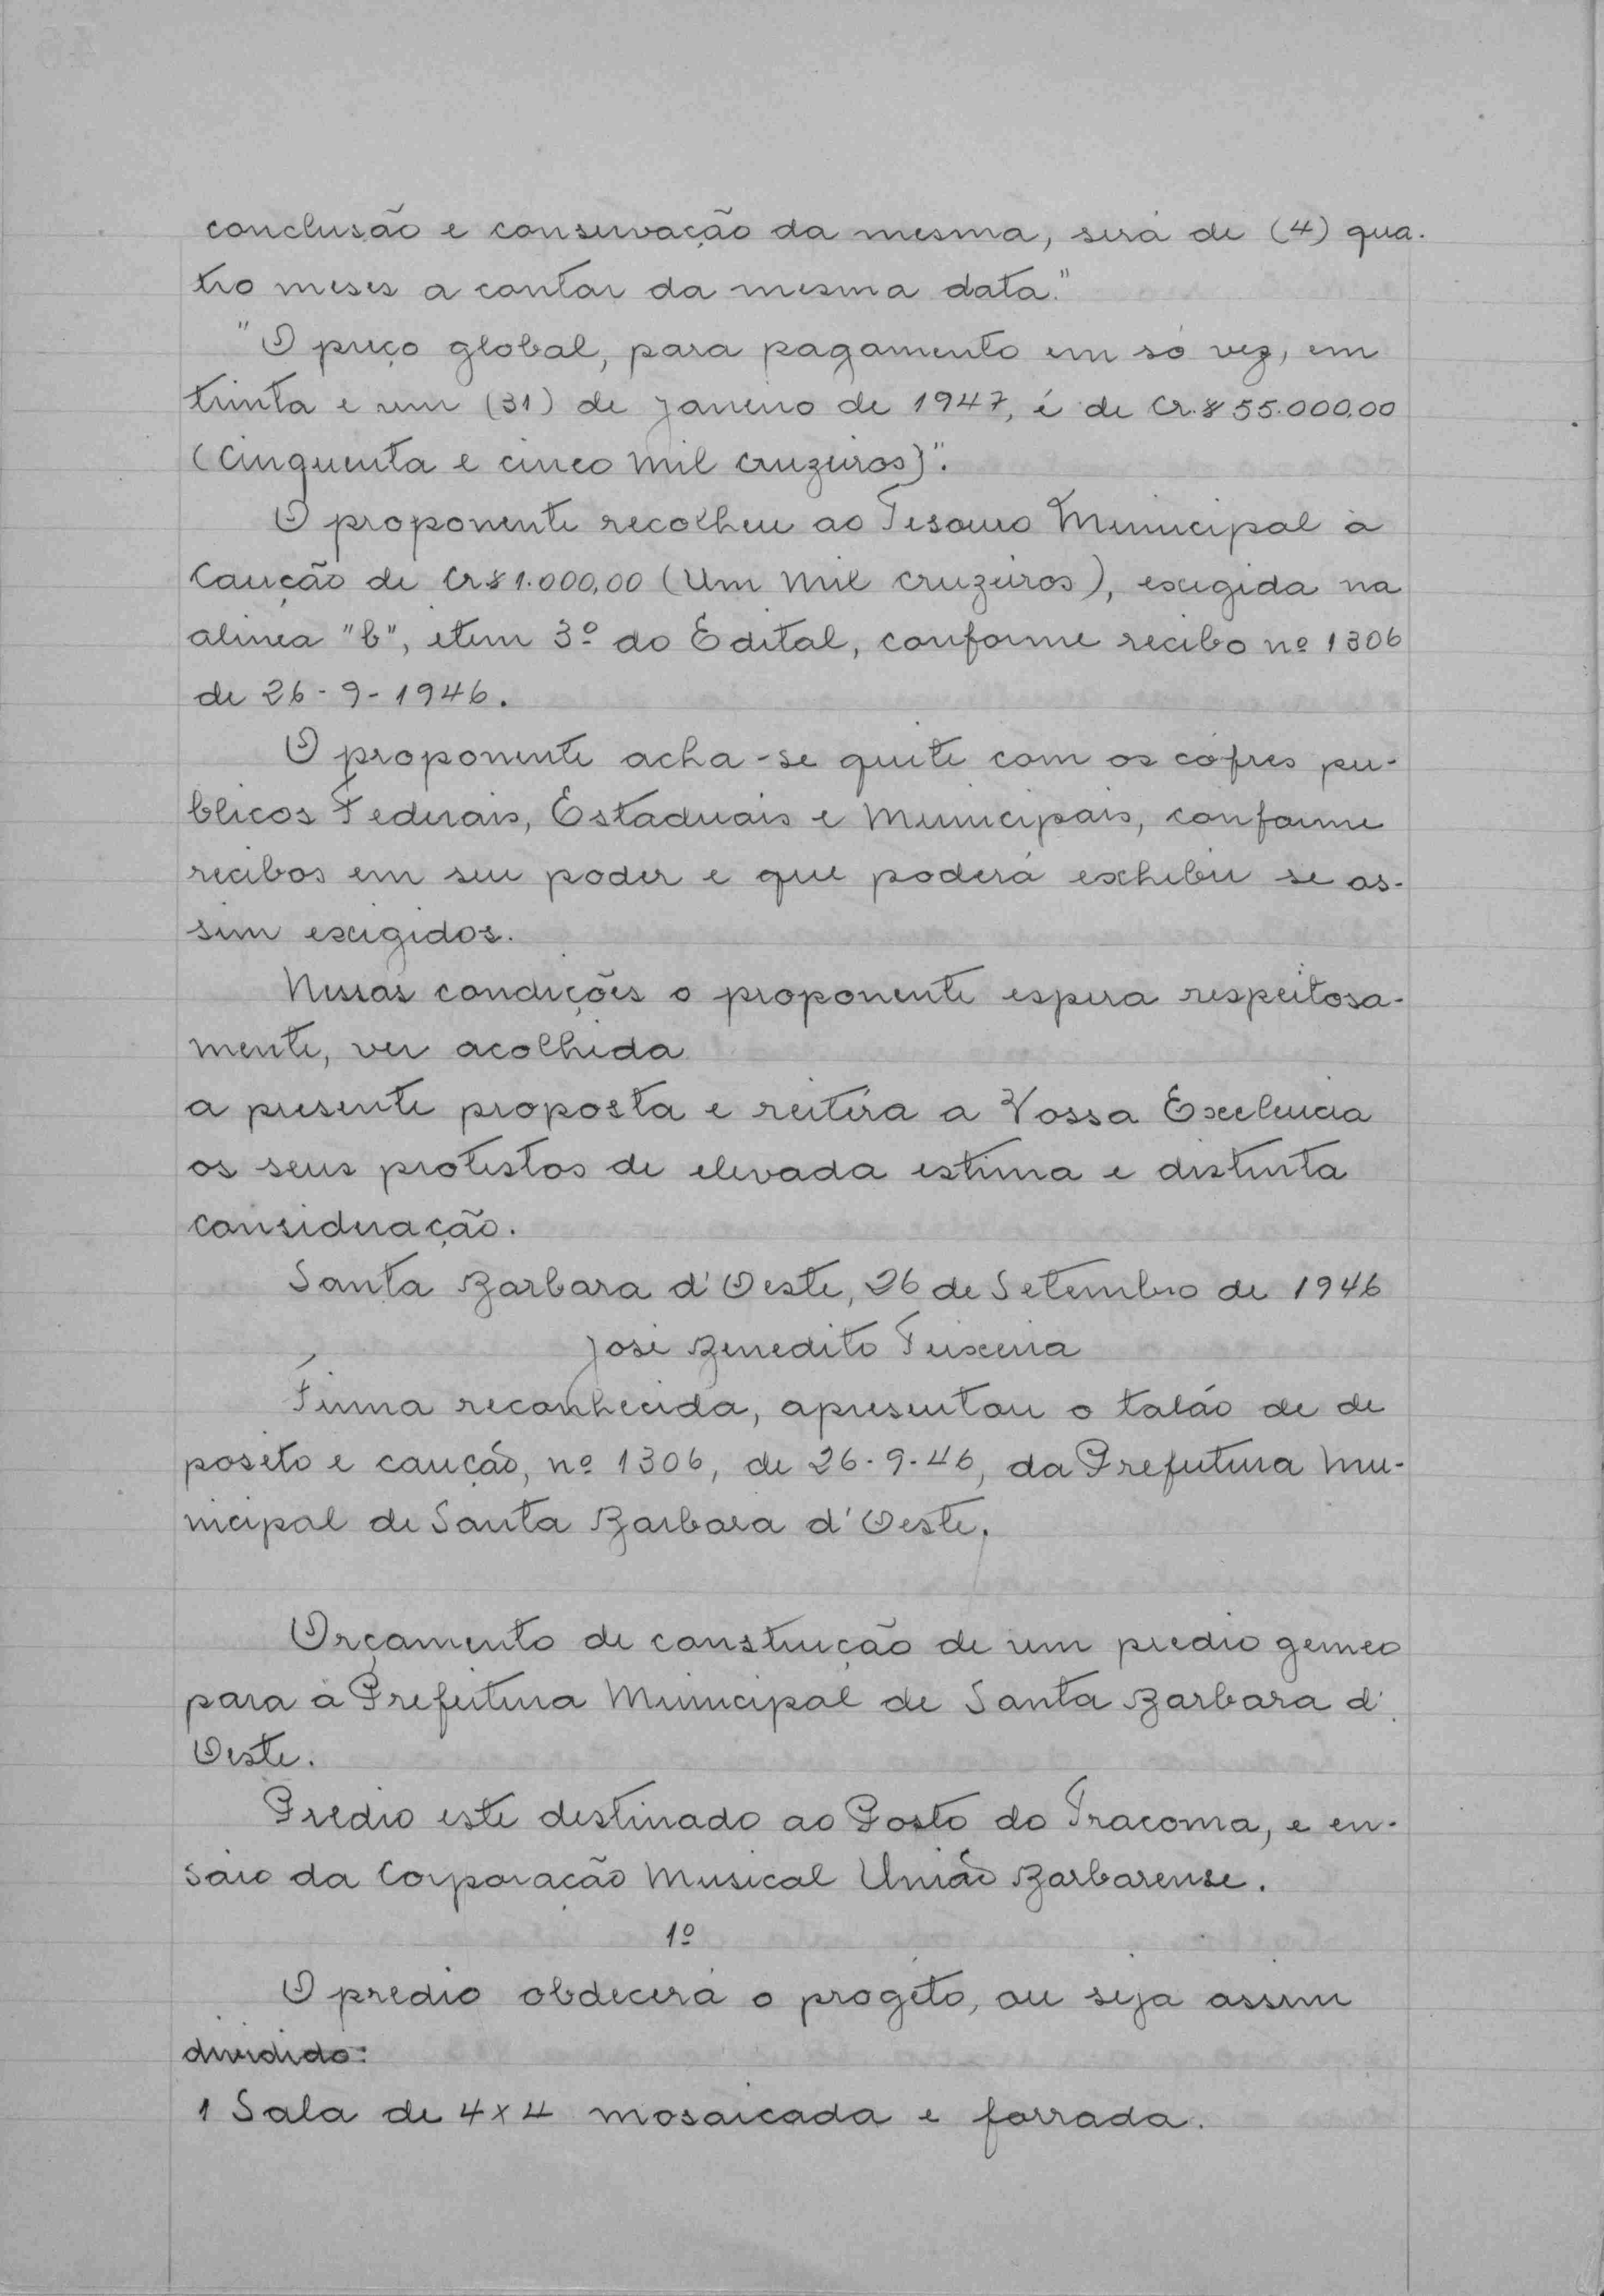 conclusão e conservação da mesma, será de (4) qua-
tro meses a contar da mesma data."
"O preço global, para pagamento em só vez, em
trinta e um (31) de Janeiro de 1947, é de Cr.$ 55.000,00
(Cinquenta e cinco mil cruzeiros)".
O proponente recolheu ao Tesouro Municipal à
Caução de Cr$ 1.000,00 (Um mil cruzeiros), exigida na
alinea "b", item 3º do Edital, conforme recibo nº 1306
de 26-9-1946.
O proponente acha-se quite com os cófres pu-
blicos Federais, Estaduais e Municipais, conforme
recibos em seu poder e que poderá exhibir se as-
sim exigidos.
Nessas condições o proponente espera respeitosa-
mente, ver acolhida
a presente proposta e reitéra a Vossa Excelencia
os seus protestos de elevada estima e distinta
consideração.
Santa Barbara d'Oeste, 26 de Setembro de 1946
José Benedito Teixeira
Firma reconhecida, apresentou o talão de de
posito e caução, nº 1306, de 26-9-46, da Prefeitura Mu-
nicipal de Santa Barbara d'Oeste.
Orçamento de construção de um predio gemeo
para à Prefeitura Municipal de Santa Barbara d'
Oeste.
Prédio este destinado ao Posto do Tracoma, e en-
saio da Corporação Musical União Barbarense.
1º
O predio obdecerá o progéto, ou seja assim
dividido:
1 Sala de 4x4 mosaicada e forrada.